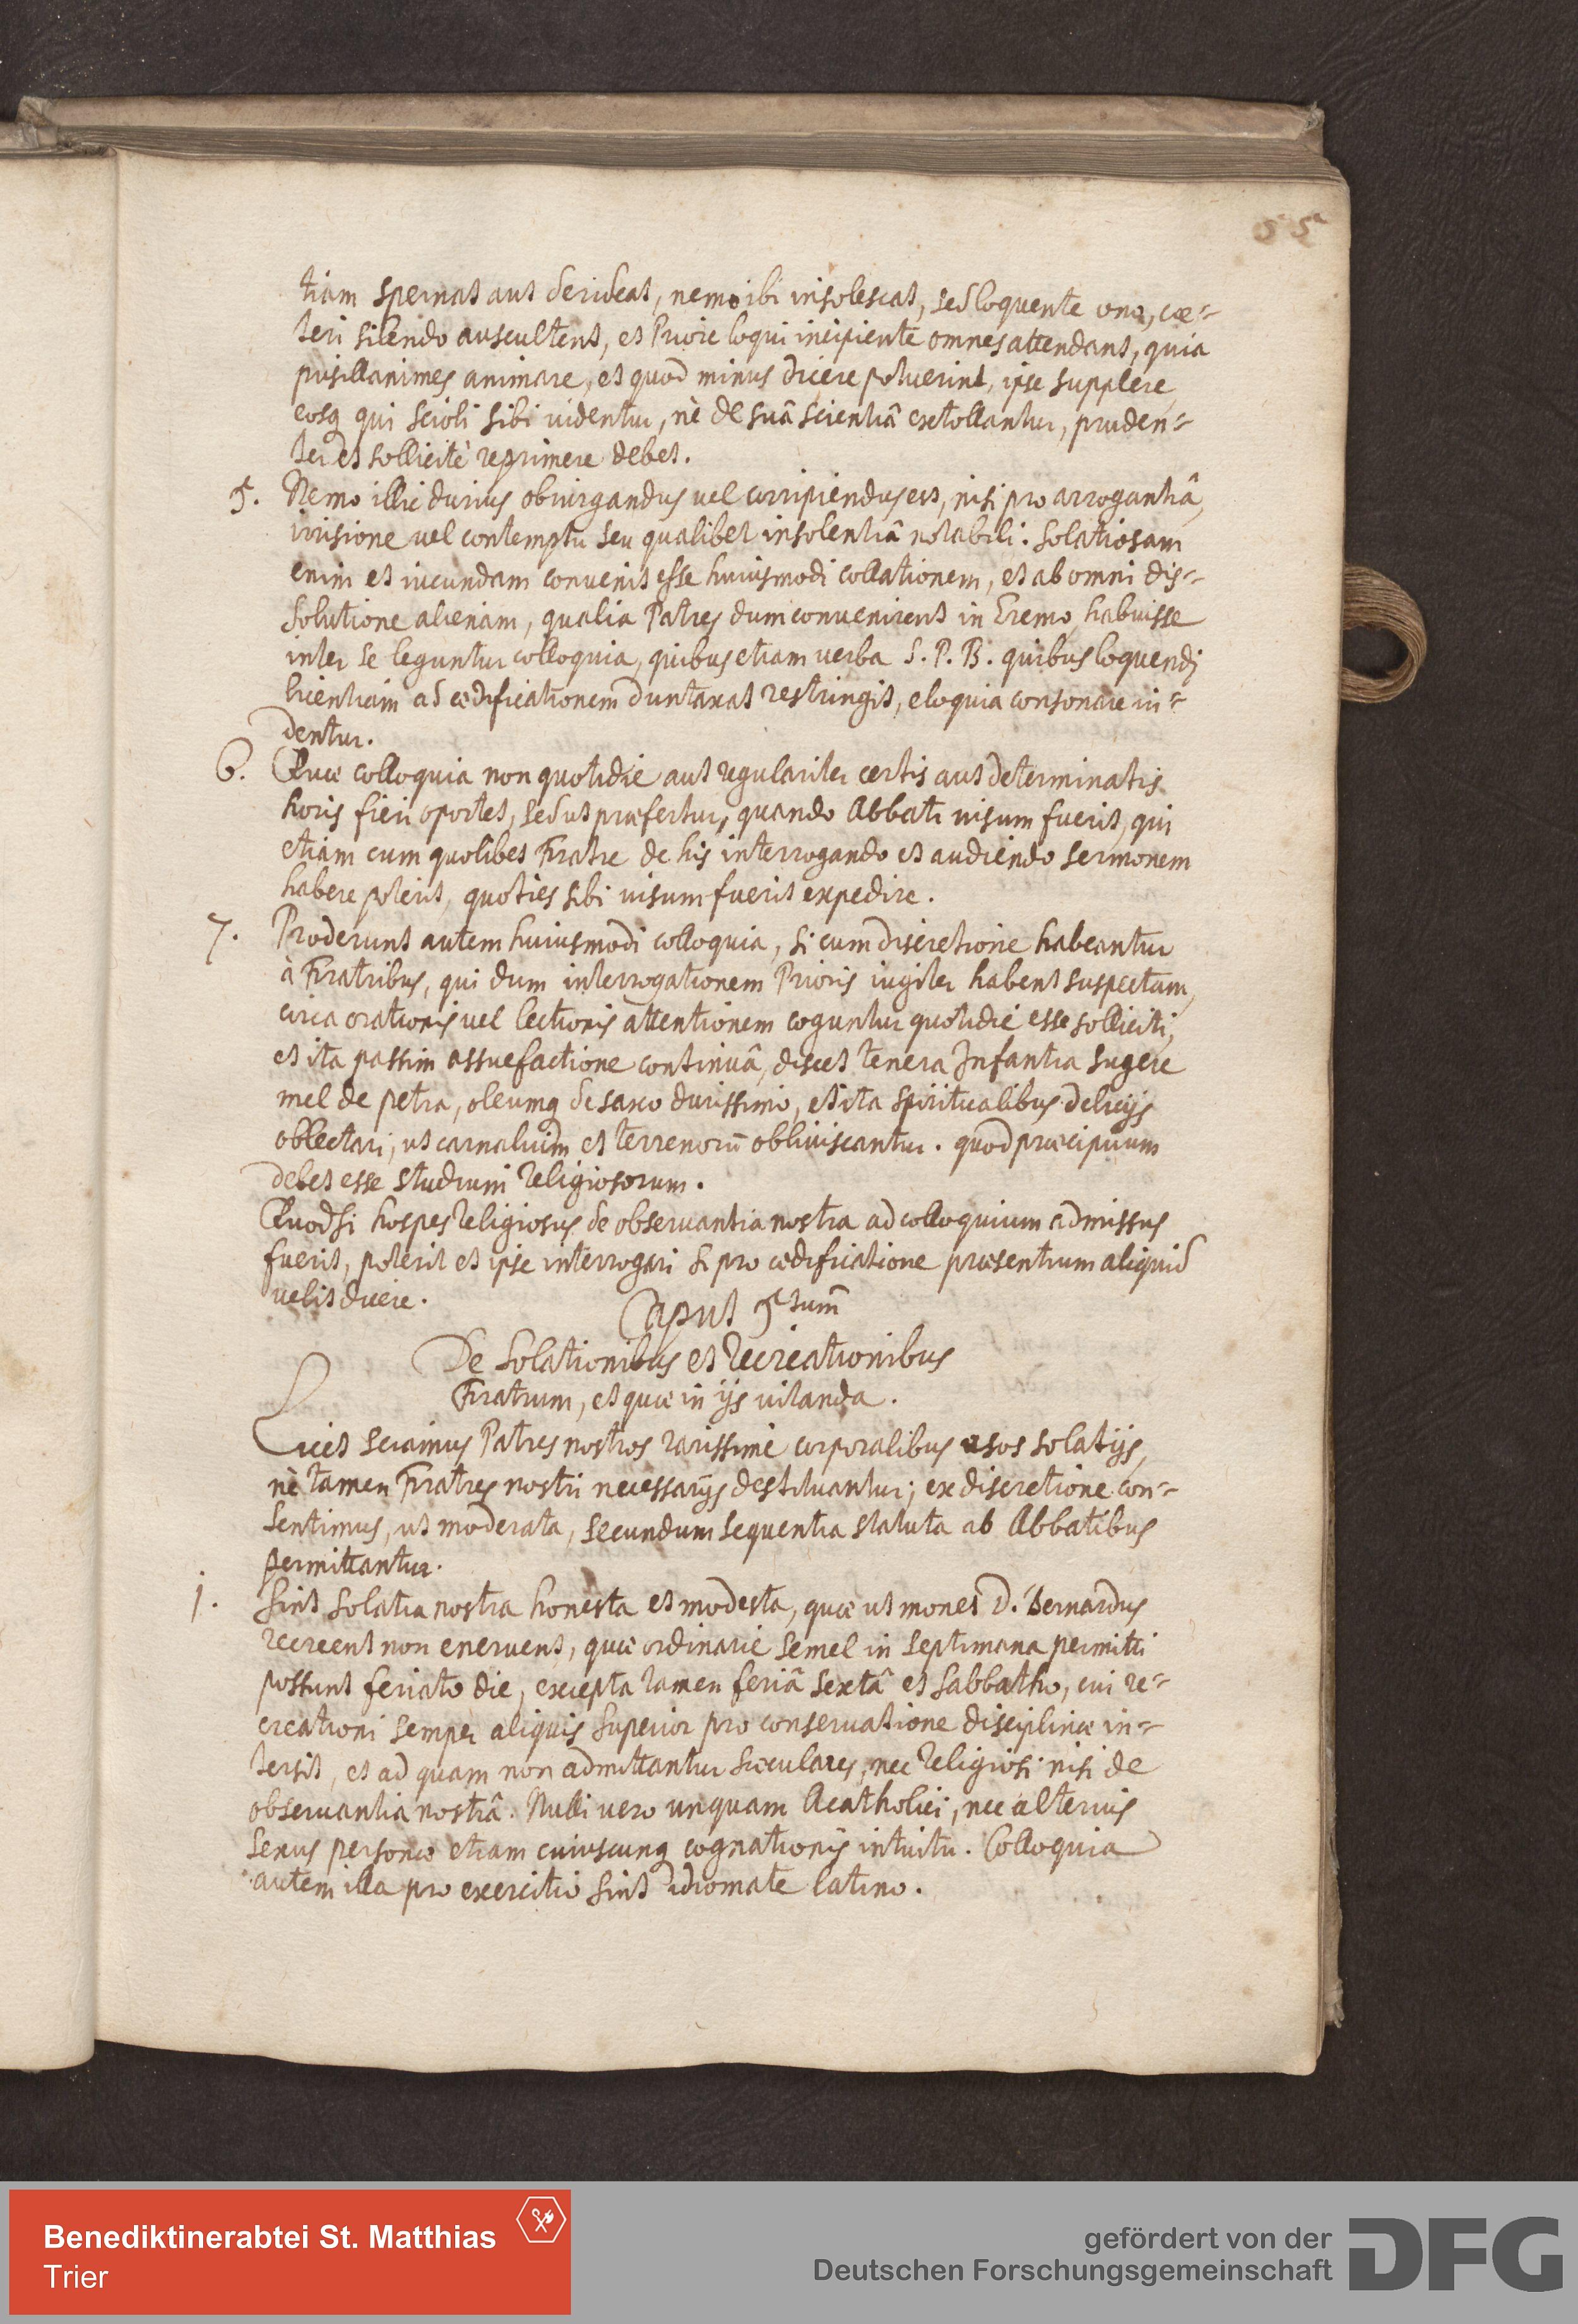 55
tiam spernat aut derideat, nemo ibi insolescat, sed loquente uno, cæ-
teri silendo auscultent, et Priore loqui incipiente omnes attendant, quia
pusillanimes animare, et quod minus dicere potuerint, ipse supplere
eosq qui scioli sibi videntur, nè de suâ scientiâ extollantur, pruden-
ter et sollicitè reprimere debet.
5. Nemo illic durius obiurgandus vel corripiendus est, nisi pro arrogantiâ,
irrisione vel contemptu seu qualibet insolentiâ notabili. Solatiosam
enim et iucundam convenit esse huiusmodi collationem, et ab omni dis-
solutione alienam, qualia Patres dum convenirent in Eremo habuisse
inter se leguntur colloquia, quibus etiam verba S. P. B. quibus loquendi
licentiam ad ædificationem duntaxat restringit, eloquia consonare vi-
dentur.
6. Quæ colloquia non quotidie aut regulariter certis aut determinatis
horis fieri oportet, sed ut præfertur, quando Abbati visum fuerit, qui
etiam cum quolibet Fratre de his interrogando et audiendo sermonem
habere poterit, quoties sibi visum fuerit expedire.
7. Proderunt autem huiusmodi colloquia, si cum discretione habeantur
à Fratribus, qui dum interrogationem Prioris iugiter habent suspectam,
circa orationis vel lectionis attentionem coguntur quotidie esse solliciti,
et ita passim assuefactione continuâ, discet tenera Infantia sugere
mel de petra, oleumq de saxo durissimo, et ita spiritualibus delicijs
oblectari, ut carnalium et terrenorū obliviscantur. quod præcipuum
debet esse studium religiosorum.
Quod si hospes religiosus de observantia nostra ad colloquium admissus
fuerit, poterit et ipse interrogari si pro ædificatione præsentium aliquid
velit dicere.
Caput 5tum
De Solationibus et recreationibus
Fratrum, et quæ in ijs vitanda.
Licet sciamus Patres nostros rarissime corporalibus usos solatijs,
nè tamen Fratres nostri necessarijs destituantur; ex discretione con-
sentimus, ut moderata, secundum sequentia statuta ab Abbatibus
permittantur.
1. Sint solatia nostra honesta et modesta, quæ ut monet D. Bernardus
recreent non enervent, quæ ordinarie semel in septimana permitti
possunt feriato die, excepta tamen feriâ sextâ et Sabbatho, cui re-
creationi semper aliquis superior pro conservatione disciplinæ in-
tersit, et ad quam non admittantur sæculares, nec religiosi nisi de
observantia nostrâ. Nulli vero unquam Acatholici, nec alterius
sexus personæ etiam cuiuscunq cognationis intuitu. Colloquia
autem illa pro exercitio sint idiomate latino.
Benediktinerabtei St. Matthias
Trier
gefördert von der
Deutschen Forschungsgemeinschaft
DFG